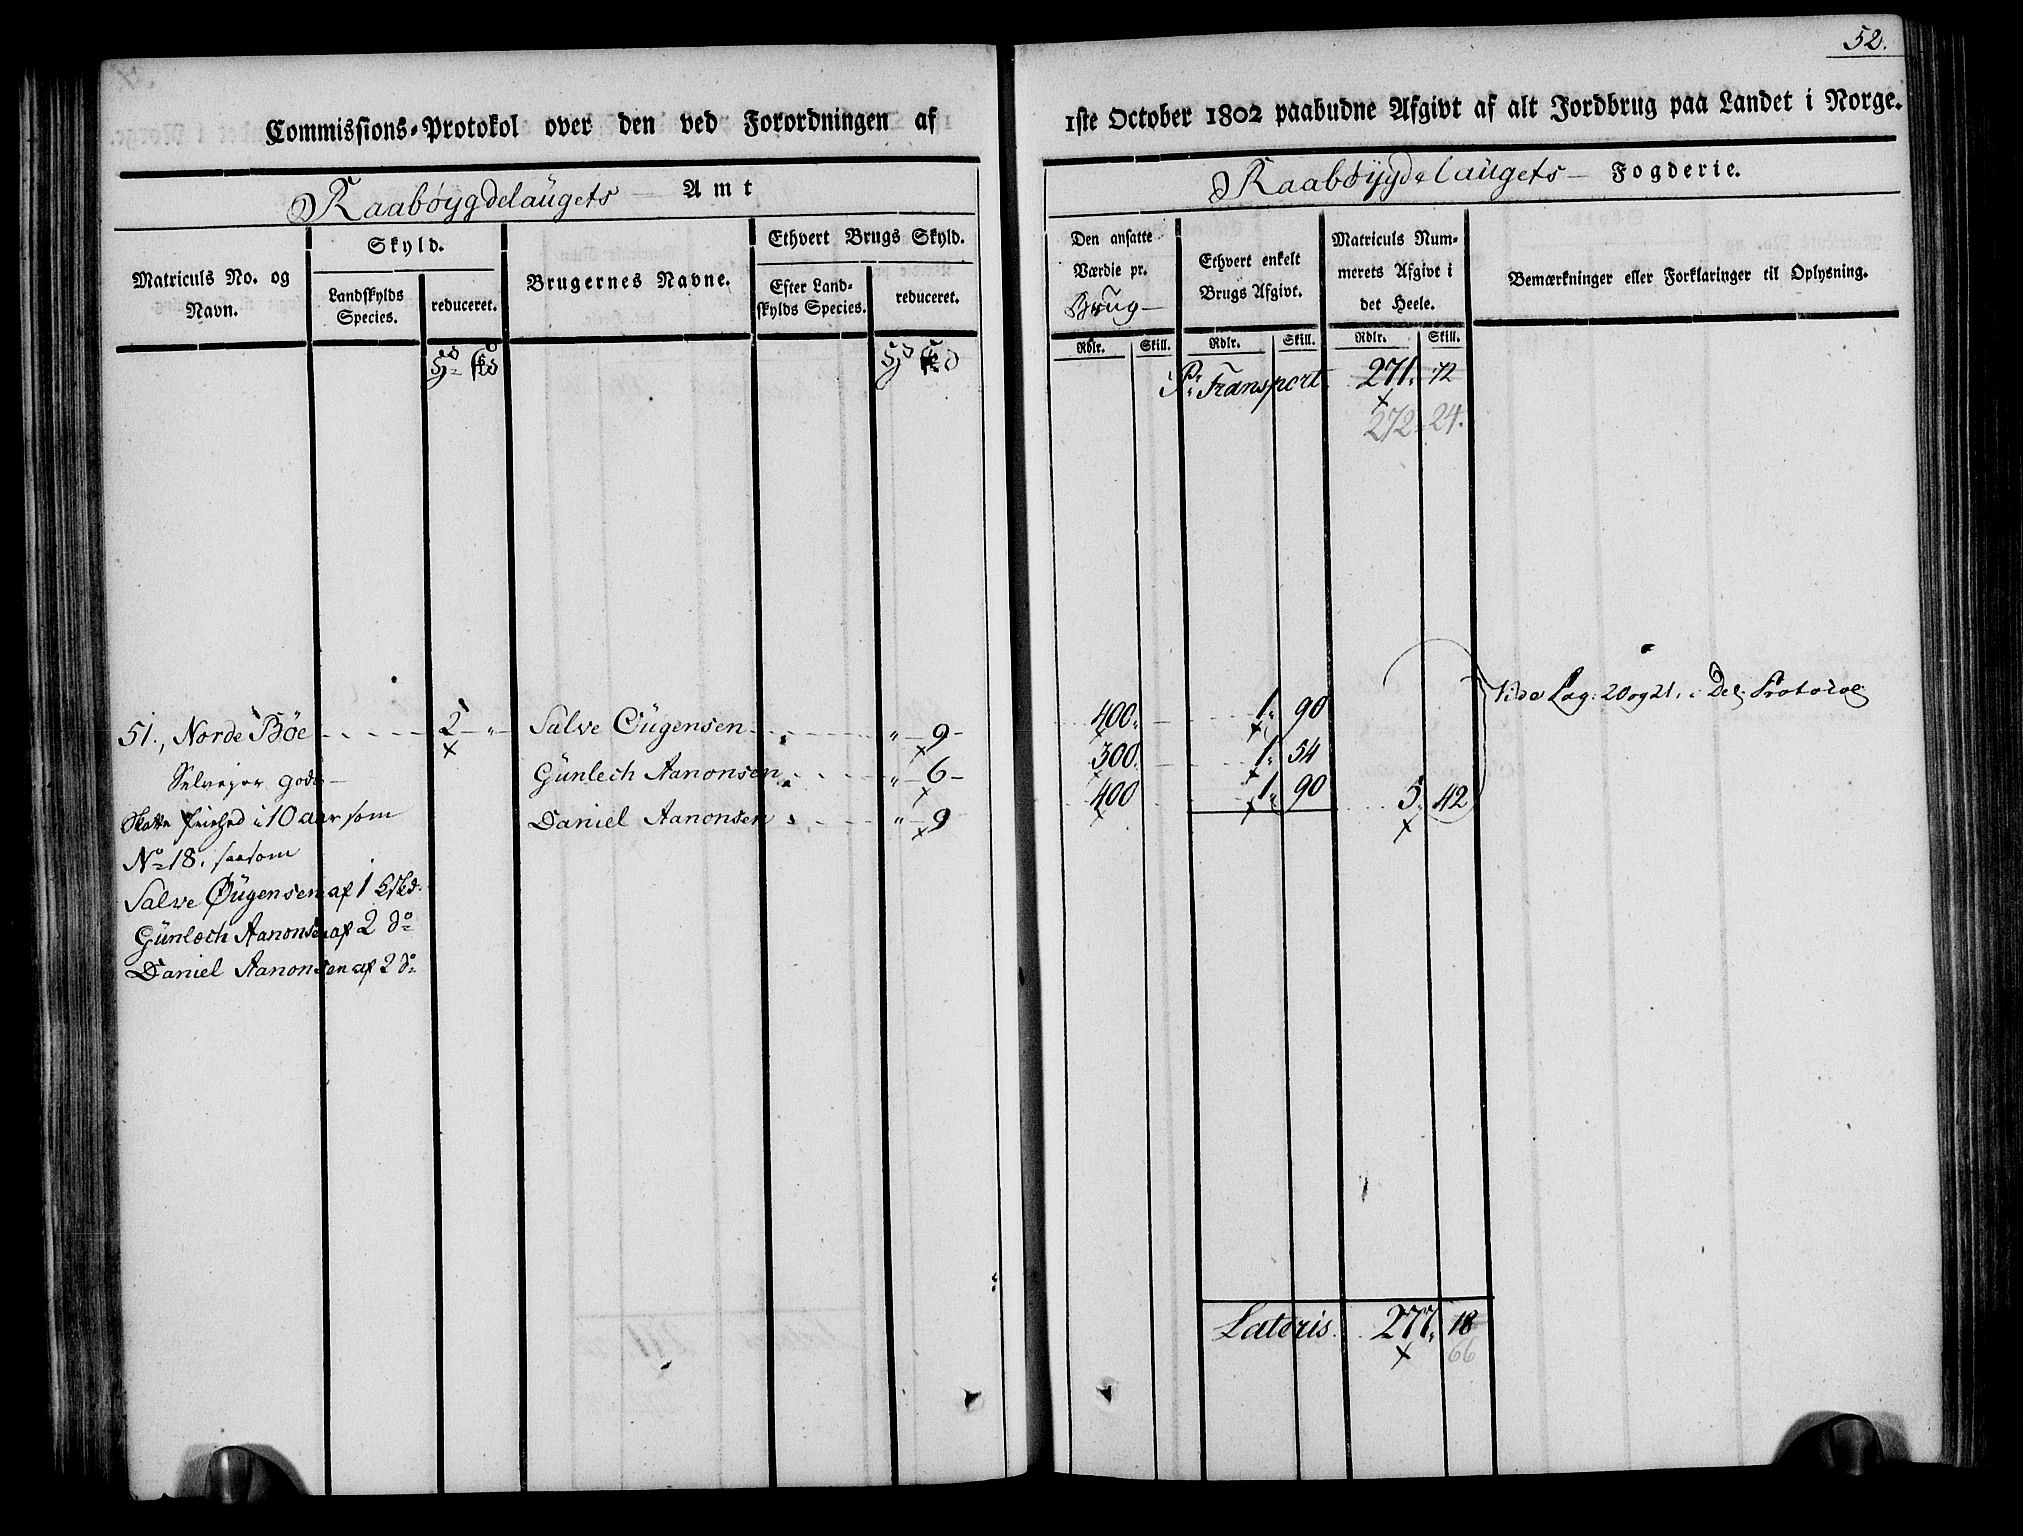 52.
Commissions-Protokol over den ved Forordningen af 1ste October 1802 paabudne Afgivt af alt Jordbrug paa Landet i Norge.
Raabøygdelaugets Amt
Raabøygdelaugets Fogderie.
Matriculs No. og Navn.
Skyld.
Landskylds Species.
reduceret.
Brugernes Navne.
Ethvert Brugs Skyld.
Efter Landskylds Species.
reduceret.
Den ansatte Værdie pr. Brug
Ethvert enkelt Brugs Afgivt.
Matriculs Nummerets Afgivt i det Heele.
Bemærkninger eller Forklaringer til Oplysning.
Rdlr. Skill. Rdlr. Skill. Rdlr. Skill.
Pr. Transport 271. 72
272. 24.
Vide Pag: 20 og 21. i Del. Protocol
51., Norde Bøe 2 " Salve Øugensen " 9 400. 1. 90
Selveyer gods Gunlech Aanonsen " 6 300. 1. 54
Skatte frihed i 10 aar som Daniel Aanonsen " 9 400 1. 90 5. 42
No 18. saasom
Salve Øugensen af 1
Gunlech Aanonsen af 2 do
Daniel Aanonsen af 2 do
Lateris. 277. 18
66